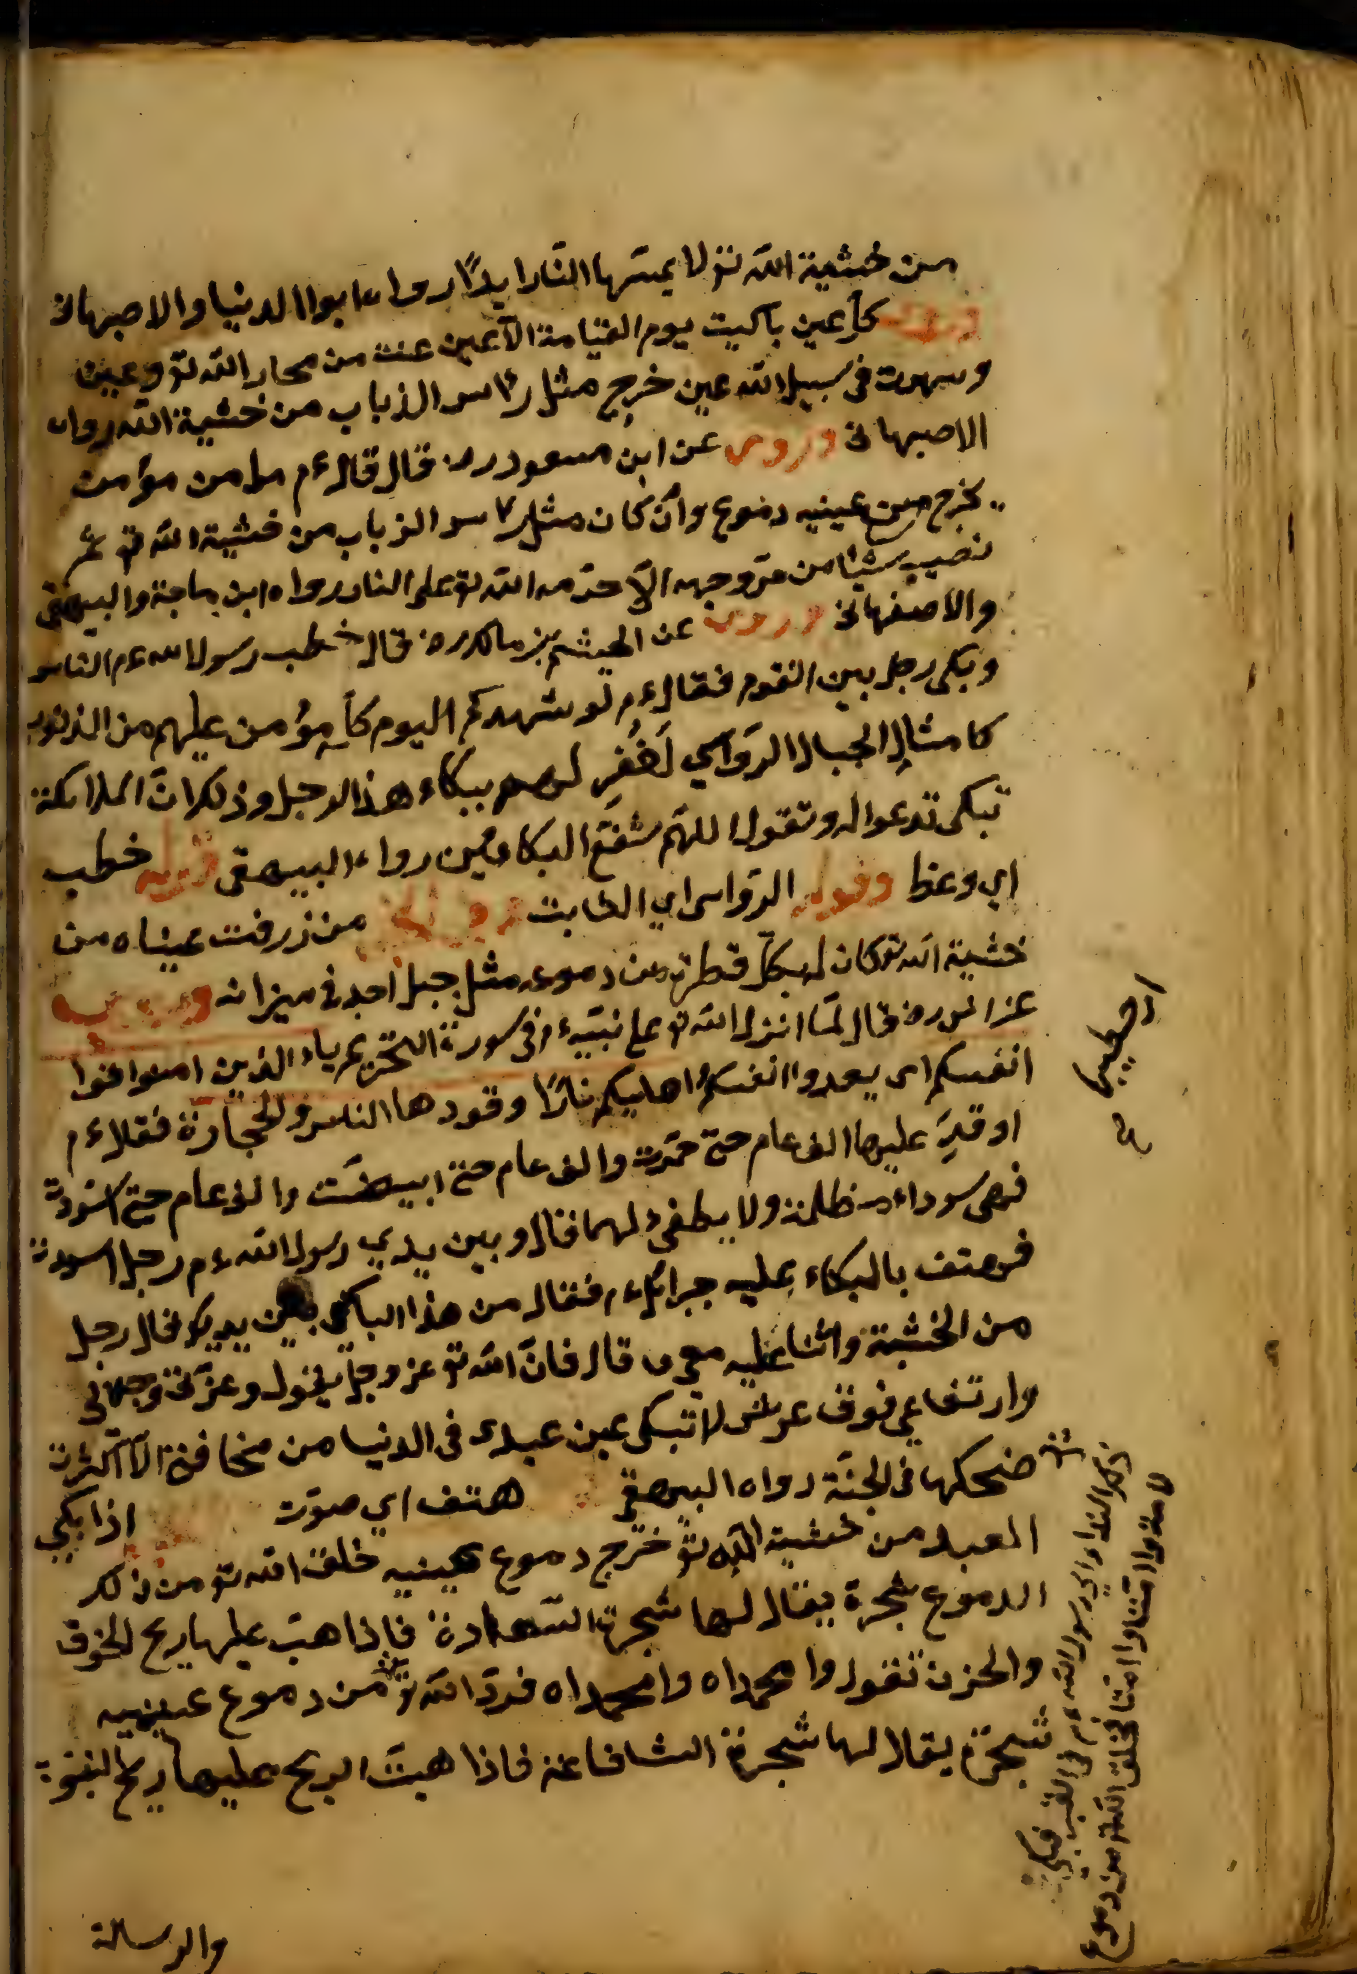 من خشية الله تو لا يمسّها النّار ابدًا رواه ابوا الدنيا والاصبهانى
وروى كلّ عين باكيت يوم القيامة الّا عين غضت من محار الله تو وعين
وسهرت فى سبيل الله عين خرج مثل رأس الذباب من خشية الله رواه
الاصبهانى وروى عن ابن مسعود رض قال قال عم ما من مؤمن
يخرج من عينيه دموع وان كان مثل رأس الذباب من خشية الله تو ثم
تصيب شيئا من حرّ وجهه الّا حرّمه الله تو على النار رواه ابن ماجة والبيهقى
والاصفهانى وروى عن الهيشم بن مالك رض قال خطب رسول الله عم الناس
وبكى رجل بين القوم فقال عم لو شهدكم اليوم كل مؤمن عليهم من الذنوب
كامثال الجبال الرّواسي لَغُفِر لهم ببكاء هذا الرجل وذلك انّ الملائكة
تبكى تدعوا له وتقول اللهم شفّع البكاءين رواه البيهقى قوله خطب
اي وعظ وقوله الرّواسى اي الثابت من زرفت عيناه من
خشية الله تو كان له بكلّ قطرة من دموعه مثل جبل احد فى ميزانه وروى
عن انس رض قال لمّا انزل الله تو على نبيّه عم فى سورة التحريم يا ايها الذين امنوا قوا
انفسكم اى يعدوا انفسكم واهليكم نارًا وقودها الناس والحجارة فقال عم
اوقدِ عليها الف عام حتى حمّرت والف عام حتى ابيضّت والف عام حتى اسودّت
فهى سوداء مظلمة ولا يطفئ لهبها قال وبين يدي رسول الله عم رجل اسود
فهتف بالبكاء عليه جبرائل عم فقال من هذا الباكي بين يديك قال رجل
من الخشبة واثنا عليه معروفا قال فانّ الله تو عز وجلّ يقول وعزّتى وجلالى
وارتفاعي فوق عرشى لا تبكى عين عبدى فى الدنيا من مخافتى الّا اكثرت
ضحكها فى الجنّة رواه البيهقى هتف اي صوّت اذا بكي
العبد من خشية الله تو خرج دموع عينيه خلق الله تو من ذلك
الدموع شجرة يقال لها شجرة السّعادة فاذا هبّ عليها ريح الخوف
والحزن تقول وا محمداه وا محمداه فردّ الله تو من دموع عينيه
شجرة يقال لها شجرة الشافاعة فاذا هبّت الريح عليها ريح النبوّة
والرسالة